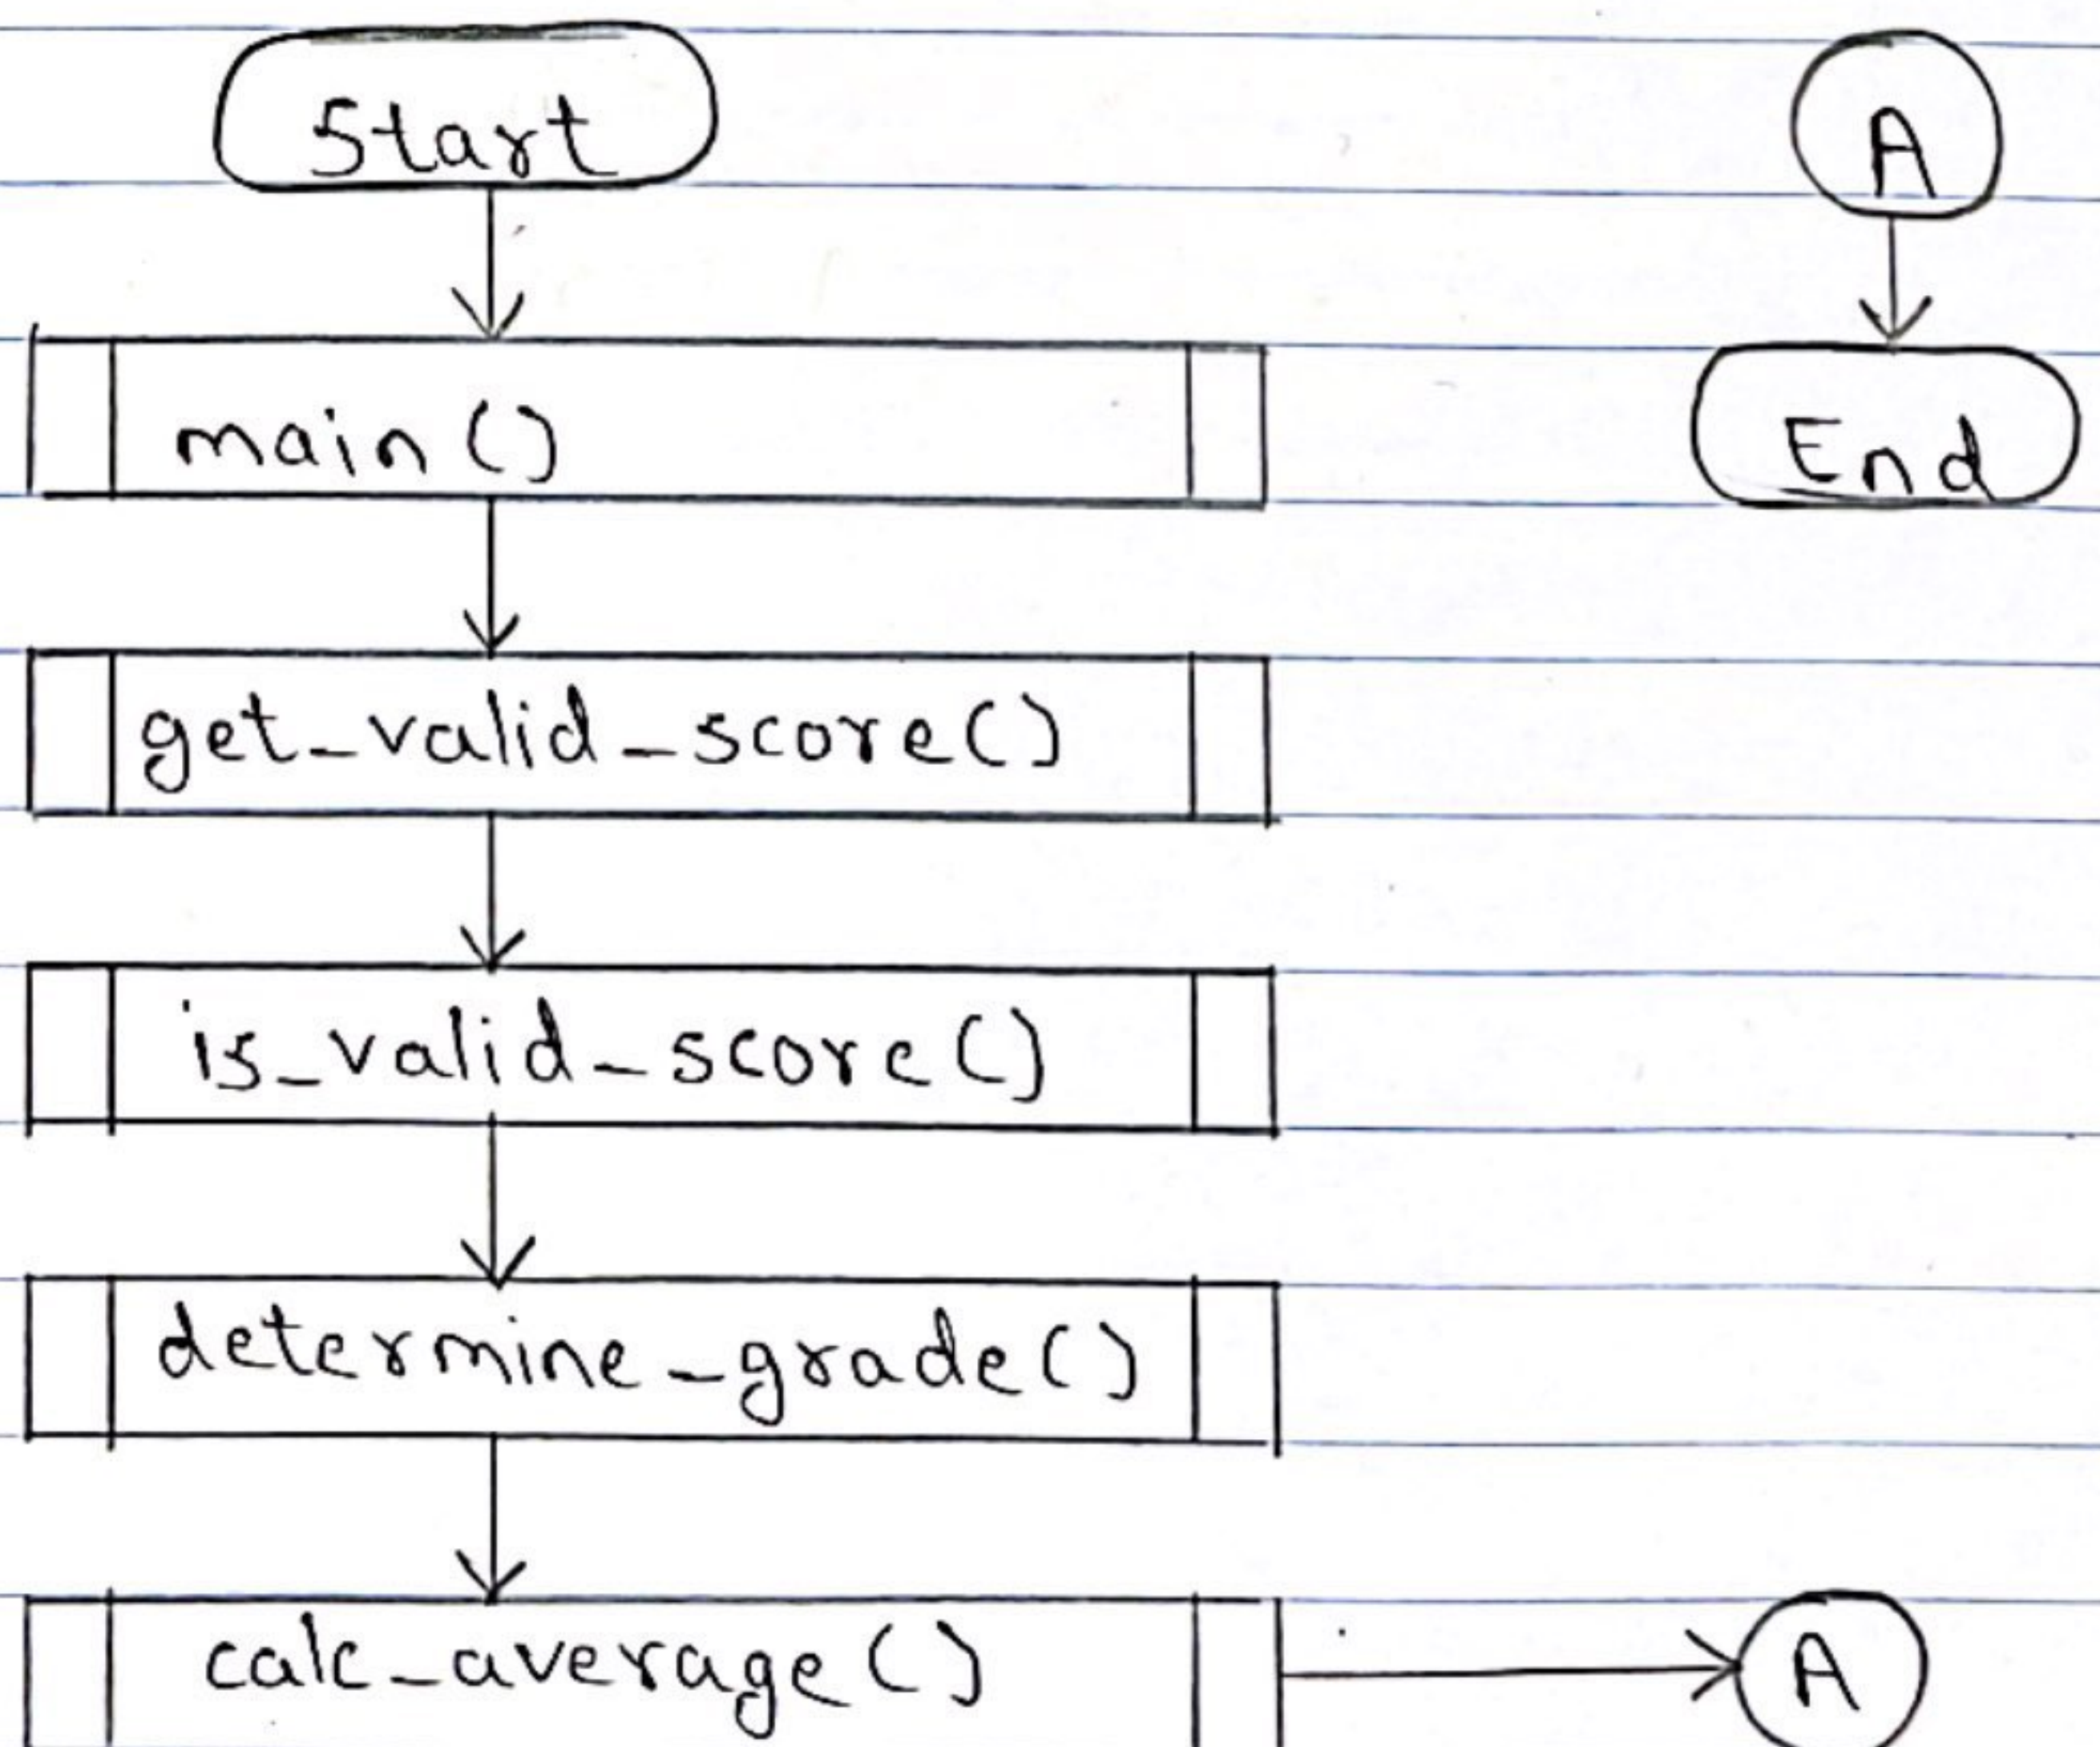 Start
main()
get_valid_score()
is_valid_score()
determine_grade()
calc_average()
A
A
End